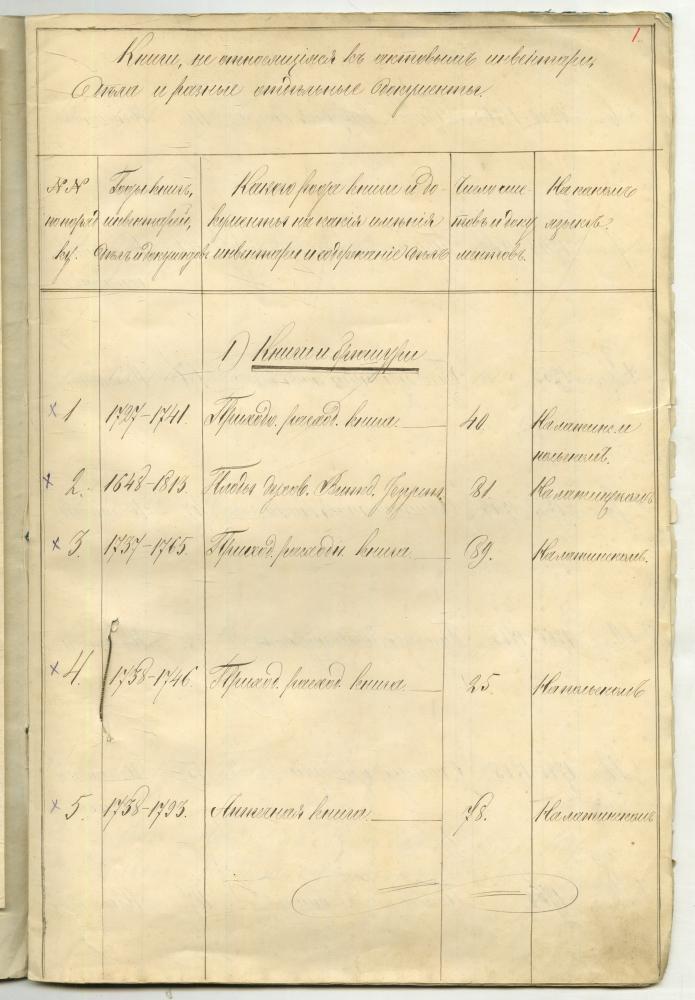 1.
Книги, не относящіяся къ актовымъ инвентари,
дѣла и разные отдѣльные документы.
№№
по поряд
ку.
Годы книгъ,
инвентарей,
дѣлъ и документовъ
Какого рода книги и до-
кументы на какія имѣнія
инвентари и содержаніе дѣлъ
Число лис-
товъ и доку
ментовъ.
На какомъ
языкѣ?
1) Книги и брошури
1 1727-1741. Приходо. расход. книга. 40 На латинс. и
польскомъ.
2. 1648-1813. духов. 81. На латинскомъ
3. 1737-1765. Приход. расходн. книга 89. На латинскомъ.
4. 1738-1746. Приход. расход. книга 25. На польскомъ
5. 1738-1793. Аптечная книга. 78. На латинскомъ